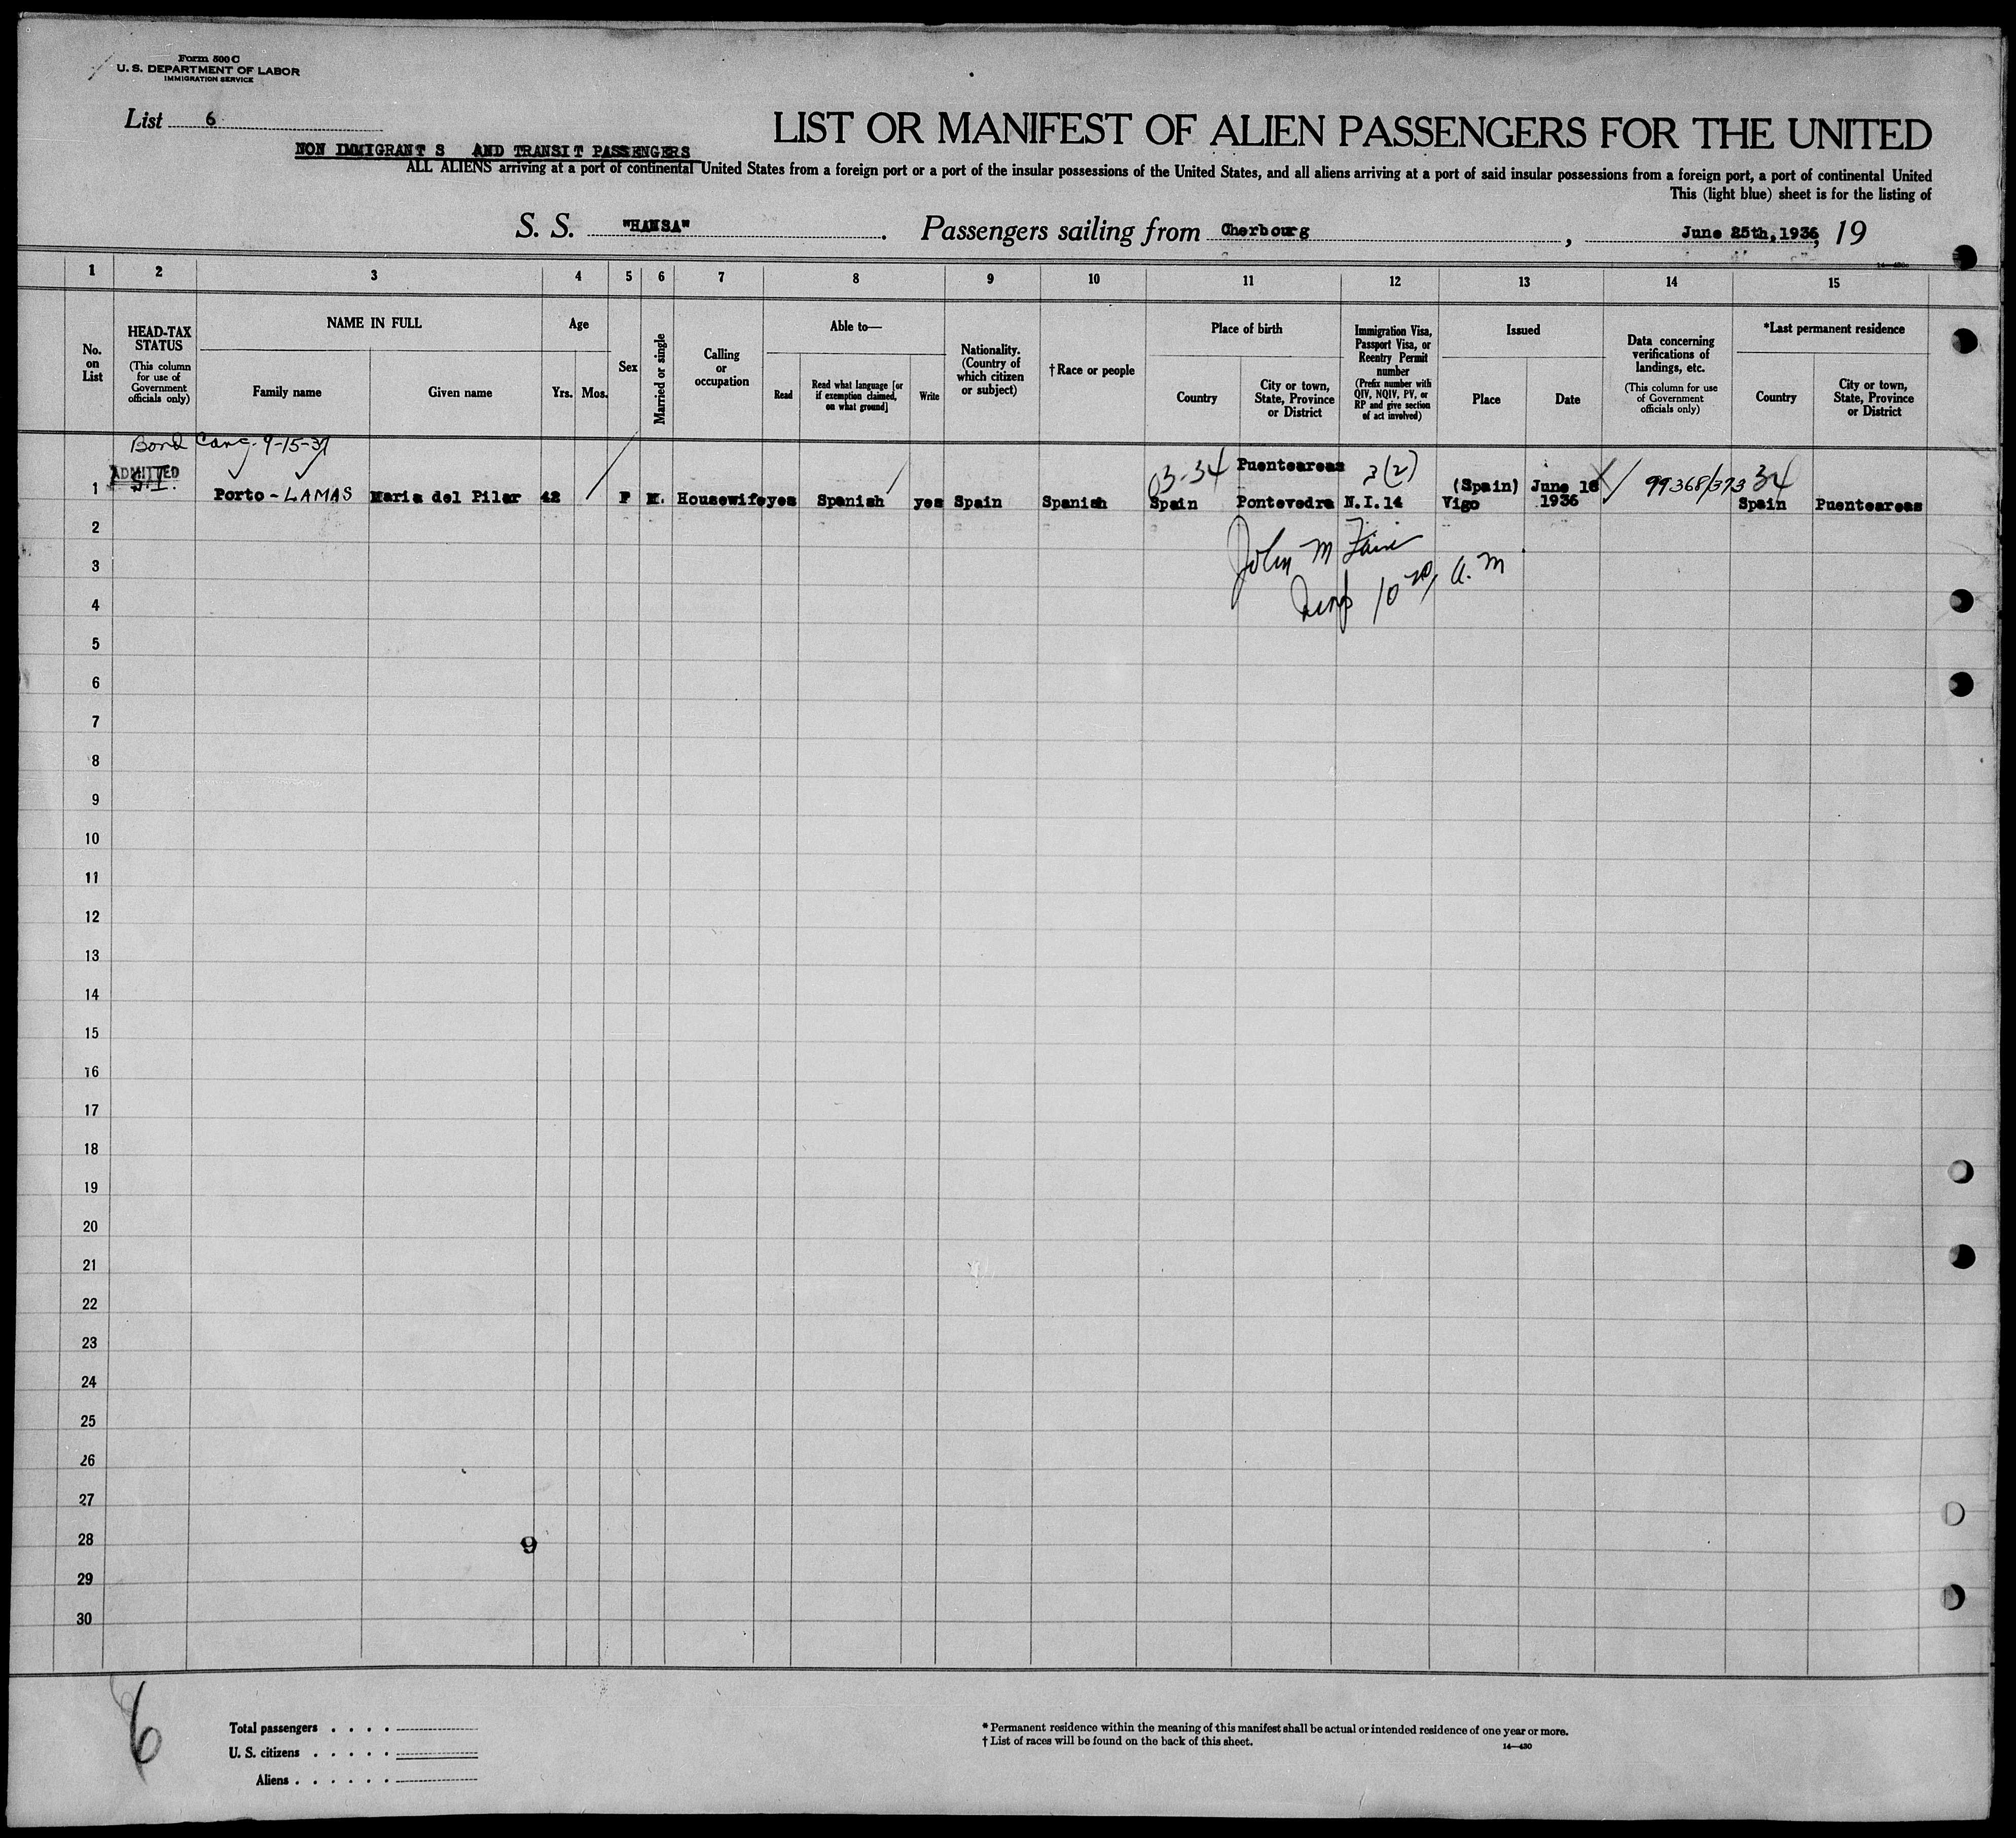 Form 500 C
U. S. DEPARTMENT OF LABOR
IMMIGRATION SERVICE
List 6
LIST OR MANIFEST OF ALIEN PASSENGERS FOR THE UNITED
NON IMMIGRANT S AND TRANSIT PASSENGERS
ALL ALIENS arriving at a port of continental United States from a foreign port or a port of the insular possessions of the United States, and all aliens arriving at a port of said insular possessions from a foreign port, a port of continental United
This (light blue) sheet is for the listing of
S. S. "HANSA". Passengers sailing from Cherbourg, June 25th, 1936, 19
1 2 3 4 5 6 7 8 9 10 11 12 13 14 15
No. on List
HEAD-TAX STATUS
(This column for use of Government officials only)
NAME IN FULL
Family name
Given name
Age
Yrs. Mos.
Sex
Married or single
Calling or occupation
Able to—
Read
Read what language [or if exemption claimed, on what ground]
Write
Nationality. (Country of which citizen or subject)
†Race or people
Place of birth
Country
City or town, State, Province or District
Immigration Visa, Passport Visa, or Reentry Permit number
(Prefix number with QIV, NQIV, PV, or RP and give section of act involved)
Issued
Place
Date
Data concerning verifications of landings, etc.
(This column for use of Government officials only)
*Last permanent residence
Country
City or town, State, Province or District
Bond Canc. 9-15-37
ADMITTED
S.I.
03-34 Puenteareas 3(2) (Spain) June 16 99368/373 34
1 Porto - LAMAS Maria del Pilar 42 F M. Housewife yes Spanish yes Spain Spanish Spain Pontevedra N.I.14 Vigo 1936 Spain Puenteareas
2
John M
3
10 20 A.M
4
5
6
7
8
9
10
11
12
13
14
15
16
17
18
19
20
21
22
23
24
25
26
27
28 9
29
30
6
Total passengers . . . .
U. S. citizens . . . . .
Aliens . . . . . .
* Permanent residence within the meaning of this manifest shall be actual or intended residence of one year or more.
† List of races will be found on the back of this sheet.
14—430